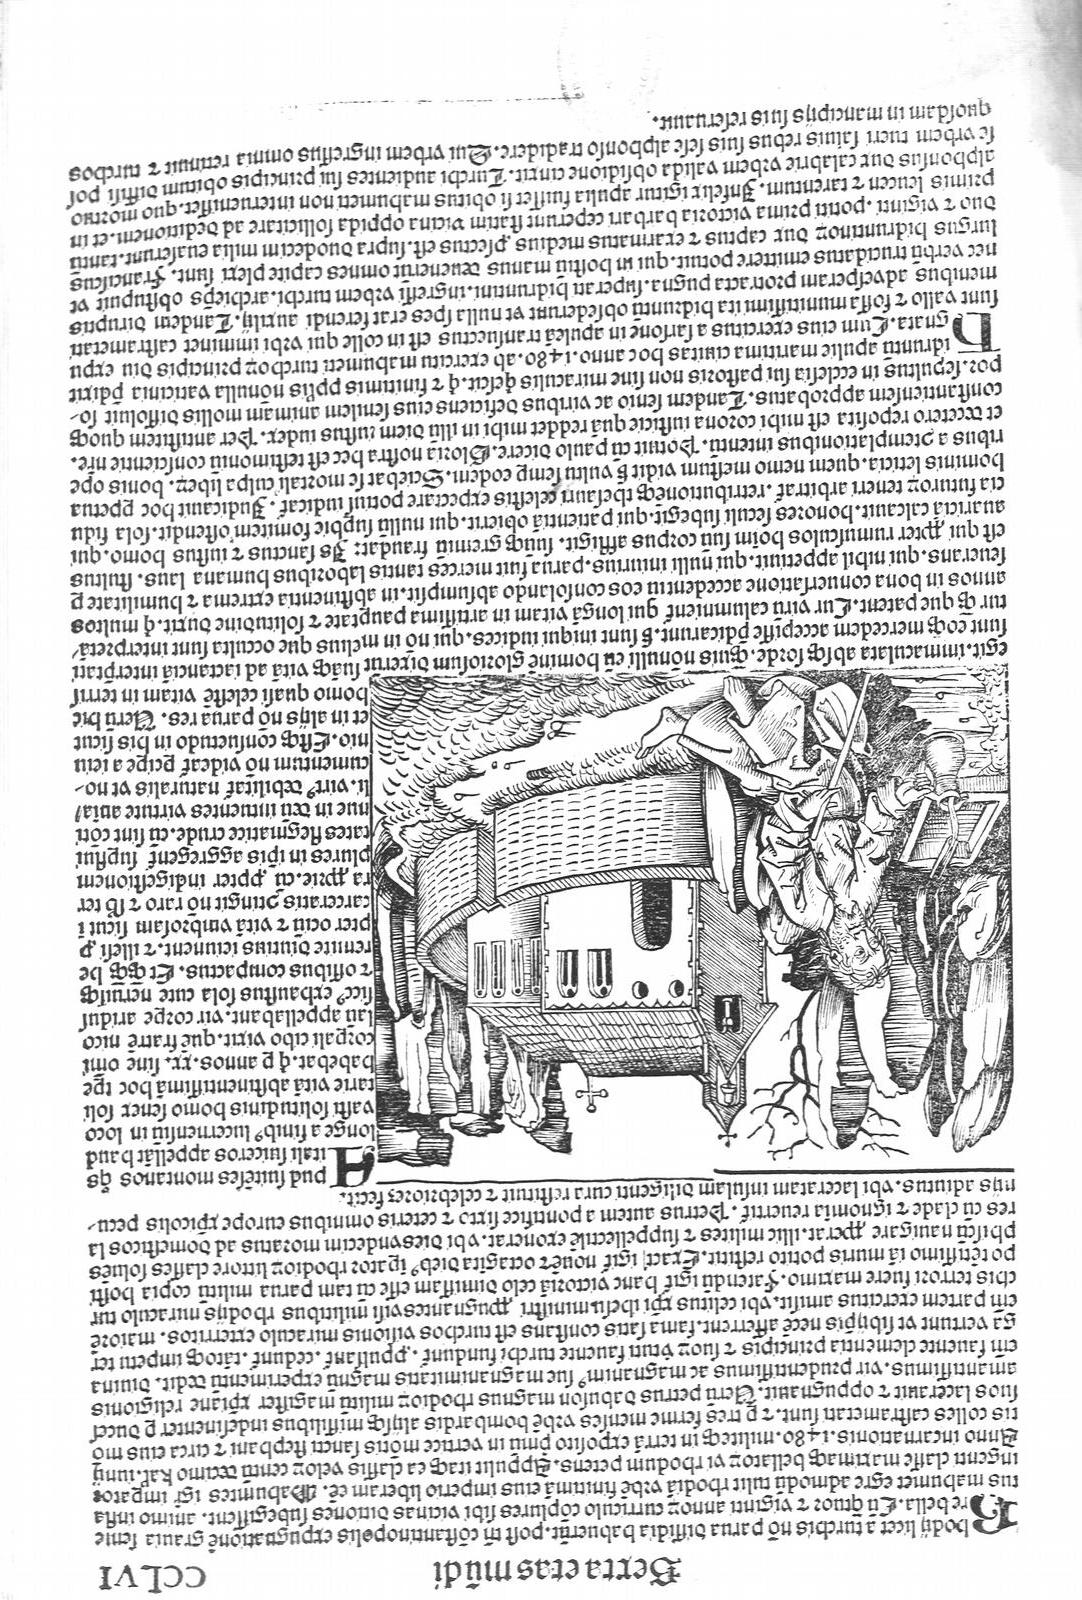 Sexta etas mũdi
CCLVI
Rhodij licet a turchis nõ parua dissidia habuerũt. post tñ cõstantinopolis expugnationẽ grauia ferme
re bella. Cũ
tus mahumet egre admodũ tulit rhodiã vrbẽ finitimã eius imperio liberam eẽ. Mahumetes igĩ imperator
ingenti classe maritimaqʒ bellatoꝝ vi rhodum petens. Appulit itaqʒ ea classis veloꝝ centũ
Anno incarnationis.1480. militeqʒ in terrã exposito pmũ in vertice mõtis sancti stephani ⁊ circa eius mo
tis colles castrametati sunt. ⁊ p tres ferme menses vrbẽ bombardis alijsqʒ missilibus indesinenter
suos lacerant ⁊ oppugnant. Verũ petrus dabusson magnus rhodioꝝ militũ magister xp̃iane religionis
amantissimus. vir prudentissimus ac magnanimꝰ sue magnanimitatis magnũ experimentũ dedit. Diuina
em̃ fauente clementia principis ⁊ suoꝝ turchi fundunt᷑. ppulsant᷑. cedunt᷑.
ga vertunt vt sibijpis necẽ afferrent. fama satis constans est turchos visionis miraculo exterritos. maiorẽ
em̃ partem exercitus amisit. vbi celitus xp̃i ppugnantes visi militibus rhodijs miraculo tur
chis terrori fuere maximo. Attendũ igit᷑ hanc victoriã celo dimissam esse cũ tam parua militũ copia hosti
potẽtissimo iã muris potito restitit. Exacti igit᷑ nouẽ ⁊ octagita diebꝰ rhodioꝝ littore classes
pħscũ nauigare pperat. illic milites ⁊ suppellectilẽ exonerat. vbi diesvndecim moratus ad domesticos la
res cũ clade ⁊ ignomĩa reuertit᷑. Petrus autem a pontifice sixto ⁊ ceteris omnibus europe xp̃icolis pecu-
nijs adiutus. vbi laceratam insulam diligenti cura restituit ⁊ celebriorẽ fecit.
Apud suitẽses montanos q̃s
itali suiceros appellãt haud
longe a finibꝰ lucernensiũ in loco
vasti solitudinis homo senex soli
tarie vitã abstinentissimã hoc tp̃e
habebat. q p annos.xx. sine om̃i
corpali cibo vixit. que fratrẽ nico
laũ appellabant. vir corpe aridus
siccꝰ exhaustus sola cute neruisqʒ
⁊ ossibus compactus. Et
retente diutius ieiunent. ⁊ illesi p
pter ociũ ⁊ vitã vmbrosam sicut ĩ
carceratis contigit nõ raro ⁊
plures in ip̃is aggregent᷑
tates flegmatice crude. cũ sint
nue in deũ intuentes virtute
li. virtꝰ debilitat᷑ naturalis vt no-
cumentum nõ videat᷑ pcipe a ieiu
nio. Estqʒ cõsuetudo in his sicut
et in alijs nõ parua res. Verũ hic
homo quasi celestẽ vitam in terris
egit. immaculata absqʒ sorde. quis nõnulli eũ hominẽ gloriosum dixerũt suãqʒ vitã ad iactanciã interp̃tati
sunt eoqʒ mercedem accepisse p̃dicarunt. sunt iniqui iudices. qui nõ in melius que occulta sunt interpretã-
tur que patent. Cur virũ calumniant᷑ qui longã vitam in artissima paupertate ⁊ solitudine duxit. q multos
annos in bona conuersatione accedentiũ eos consolando absumpsit. in abstinentia extrema ⁊ humilitate p
seuerans. qui nihil appetiuit. qui nulli iniurius. parua fuit merces tantis laboribus humana laus. stultus
est qui ppter rumusculos hoim suũ corpus affligit. suũqʒ gremiũ fraudat. Is sanctus ⁊ iustus homo. qui
auaritiã calcauit. honores seculi subegit. qui patientiã obierit. qui nullũ fomitem ostendit. sola fidu
cia futuroꝝ teneri arbitrat᷑. retributionemqʒ thesauri celestis expectare potius iudicat᷑. Judicauit hoc
hominis leticia. quem nemo mestum vidit vultu semp eodem. Sciebat se mortali culpa liberũ. bonis ope
ribus ⁊ contemplationibus intentũ. Potuit cũ paulo dicere. Gloria nostra hec est testimoniũ conscientie nr̃e.
et decetero reposita est mihi corona iusticie. quã reddet mihi in illũ diem iustus iudex. Per antistitem quoqʒ
constantiensem approbatus. Tandem senio ac viribus deficiens eius senilem animam mollis dissoluit so-
por. sepultus in ecclesia sui pastoris non sine miraculis defecit. q ⁊ finitimis pp̃lis nõnulla vaticinia p̃dixit
Hidruntũ apulie maritima ciuitas hoc anno.1480. ab exercitu mahumeti turchoꝝ principis diu expu
gnata. Cum eius exercitus a sasone in apuleã transuectus est in colle qui vrbi imminet castrametati
sunt vallo ⁊ fossa munitissimi ita hidruntũ obsederunt vt nulla spes erat ferendi auxilij. Tandem dirutis
menibus aduesperam prouocata pugna. superati hidruntini. ingressi vrbem turchi. archiep̃s obstupuit vt
nec verbũ trucidatus emittere potuit. qui in hostiũ manus deuenerũt omnes capite plexi sunt. Franciscus
largus hidruntinoꝝ dux captus ⁊ exarmatus medius psectus est. supra duodecim milia ceciderunt. tantũ
duo ⁊ viginti. potiti prima victoria barbari ceperunt statim vicina oppida sollicitare ad deditionem. et in
primis leucen ⁊ tarentum. Infelix igitur apulia fuisset si obitus mahumeti non interuenisset. quo mortuo
alphonsus dux calabrie vrbem valida obsidione cinxit. Turchi audientes sui principis obitum diffisi pos
se vrbem tueri saluis rebus suis sese alphonso tradidere. Qui vrbem ingressus omnia retinuit ⁊ turchos
quosdam in mancipijs suis reseruauit.